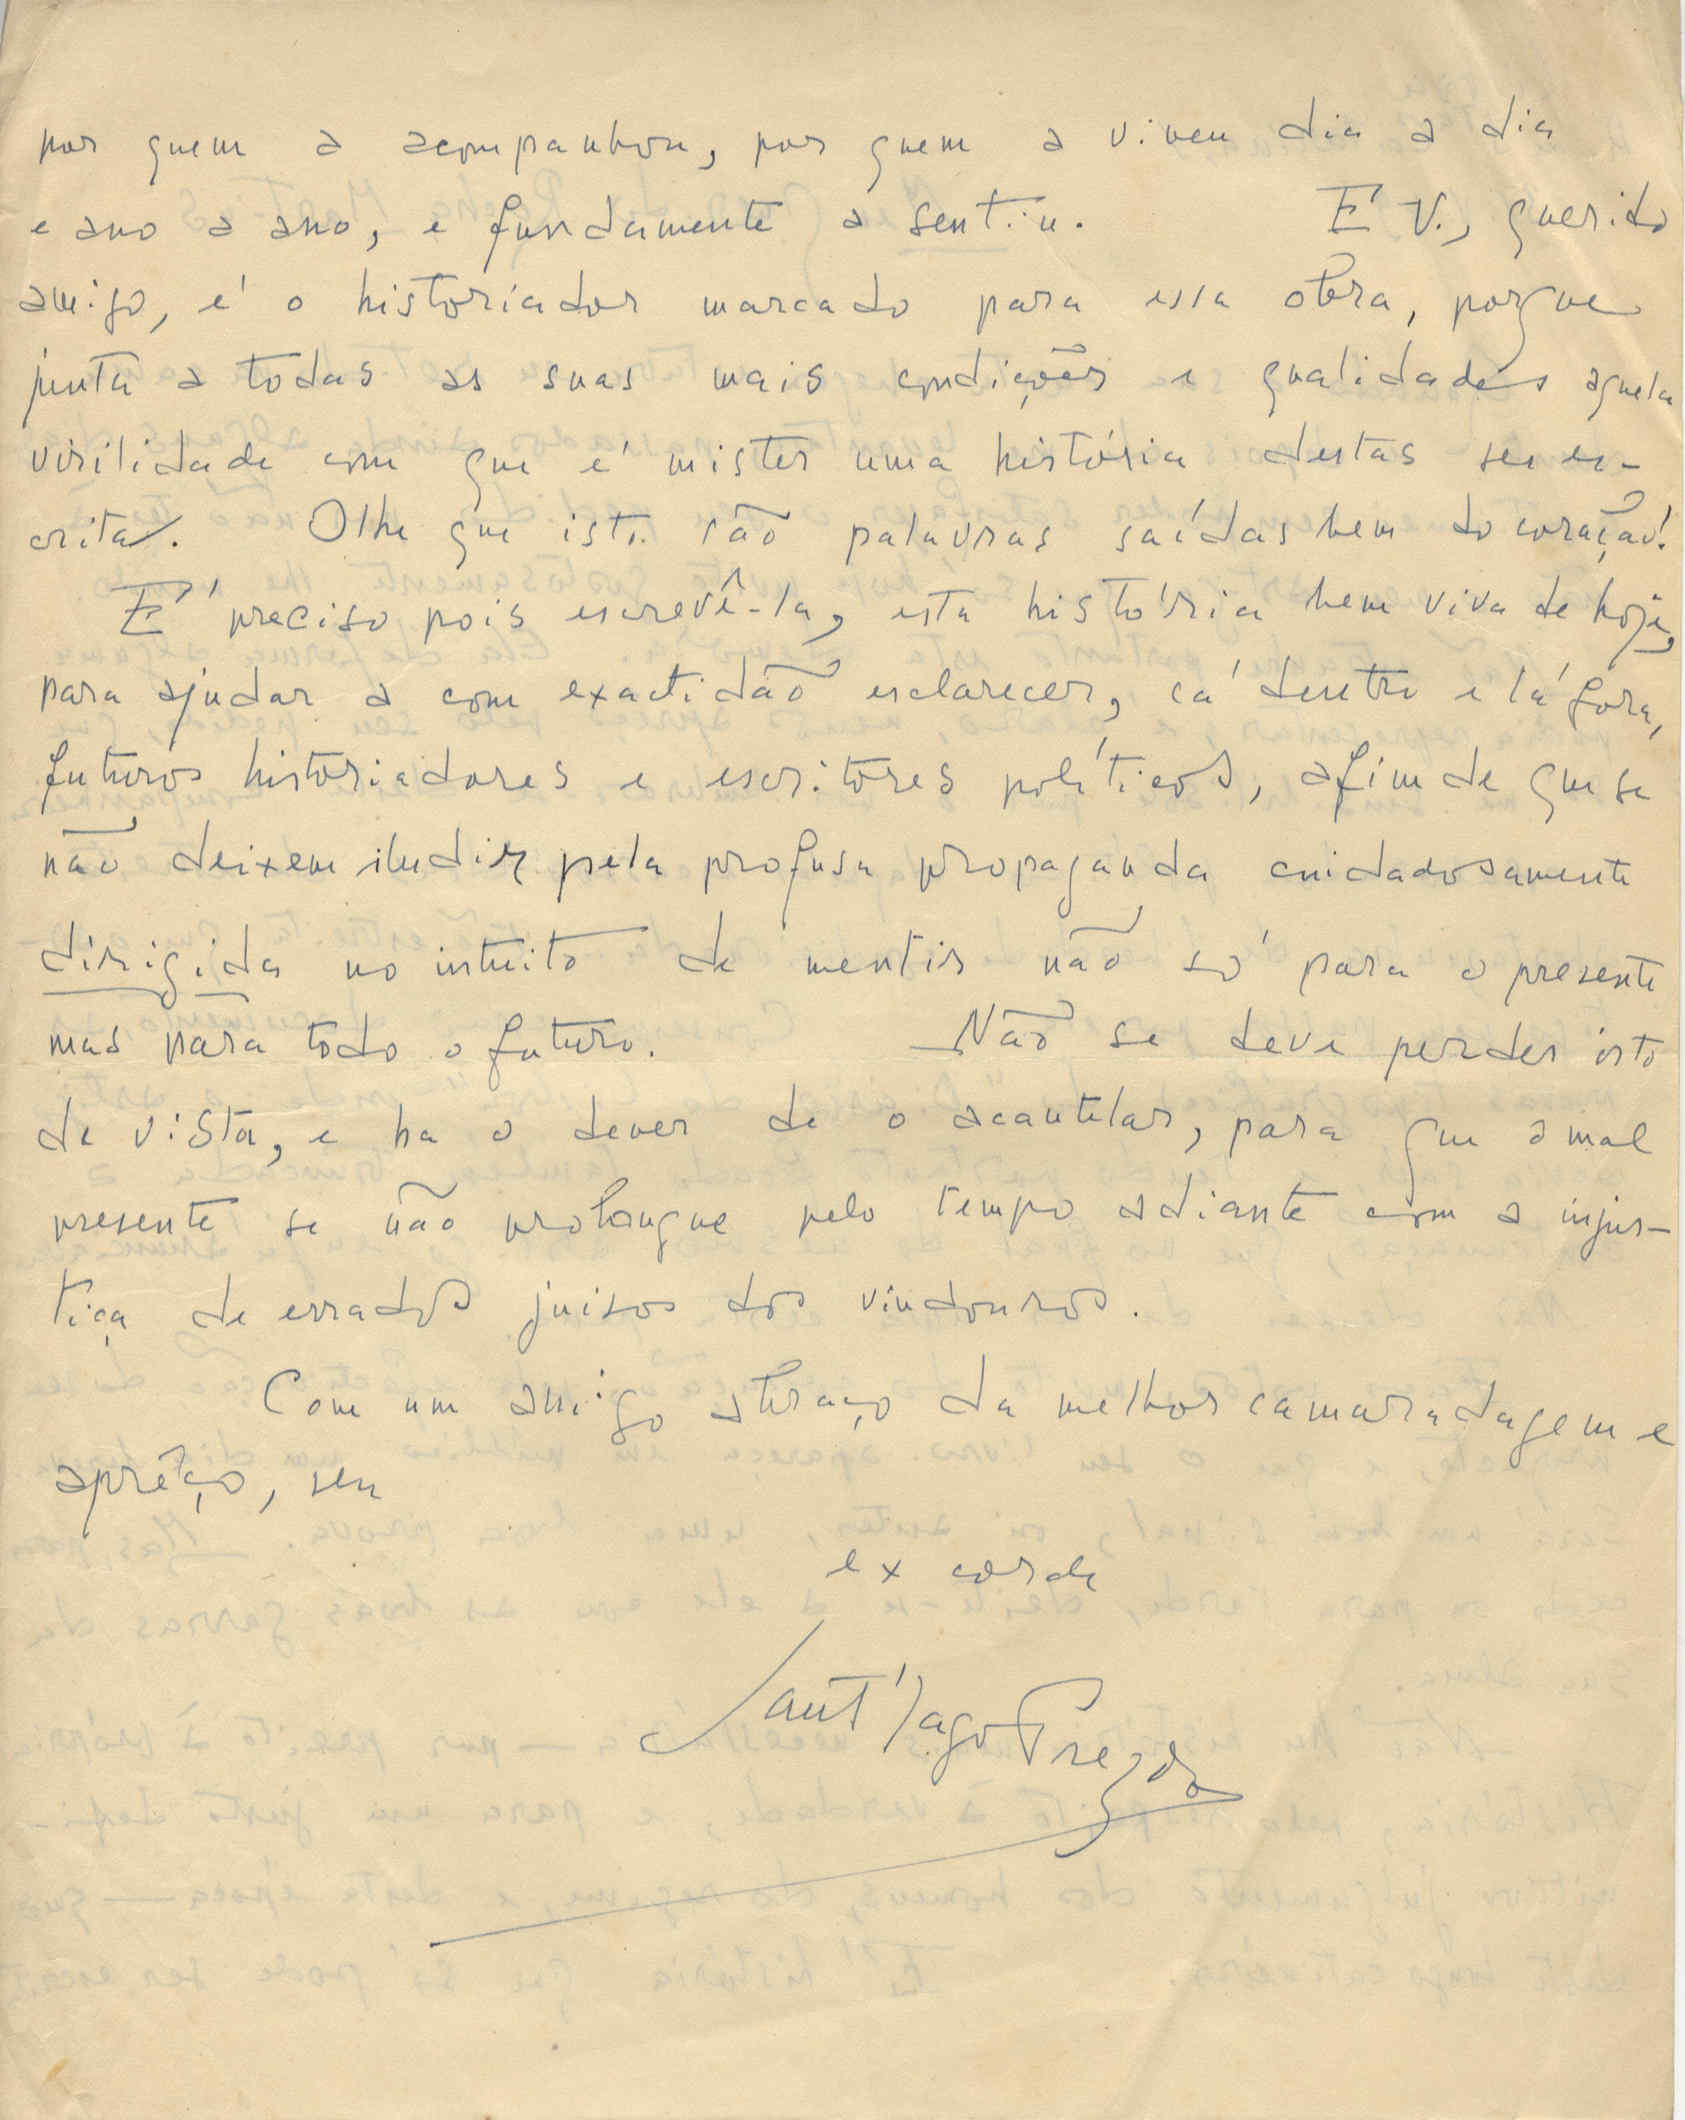 por quem a acompanhou, por quem a viveu dia a dia
e ano a ano, e fundamente a sentiu. E V., querido
amigo, é o historiador marcado para essa obra, porque
junta a todas as suas mais condições e qualidades aquela
virilidade com que é mister uma história destas ser es-
crita. Olhe que isto são palavras saídas bem do coração!
É preciso pois escrevê-la, esta história bem viva de hoje,
para ajudar a com exactidão esclarecer, cá dentro e lá fora,
futuros historiadores e escritores políticos, afim de que se
não deixem iludir pela profusa propaganda cuidadosamente
dirigida no intuito de mentir não só para o presente
mas para todo o futuro. Não se deve perder isto
de vista, e ha o dever de o acautelar, para que o mal
presente se não prolongue pelo tempo adiante com a injus-
tiça de errados juisos dos vindouros.
Com um amigo abraço da melhor camaradagem e
aprêço, seu
ex corde
Sant'Iago Prezado